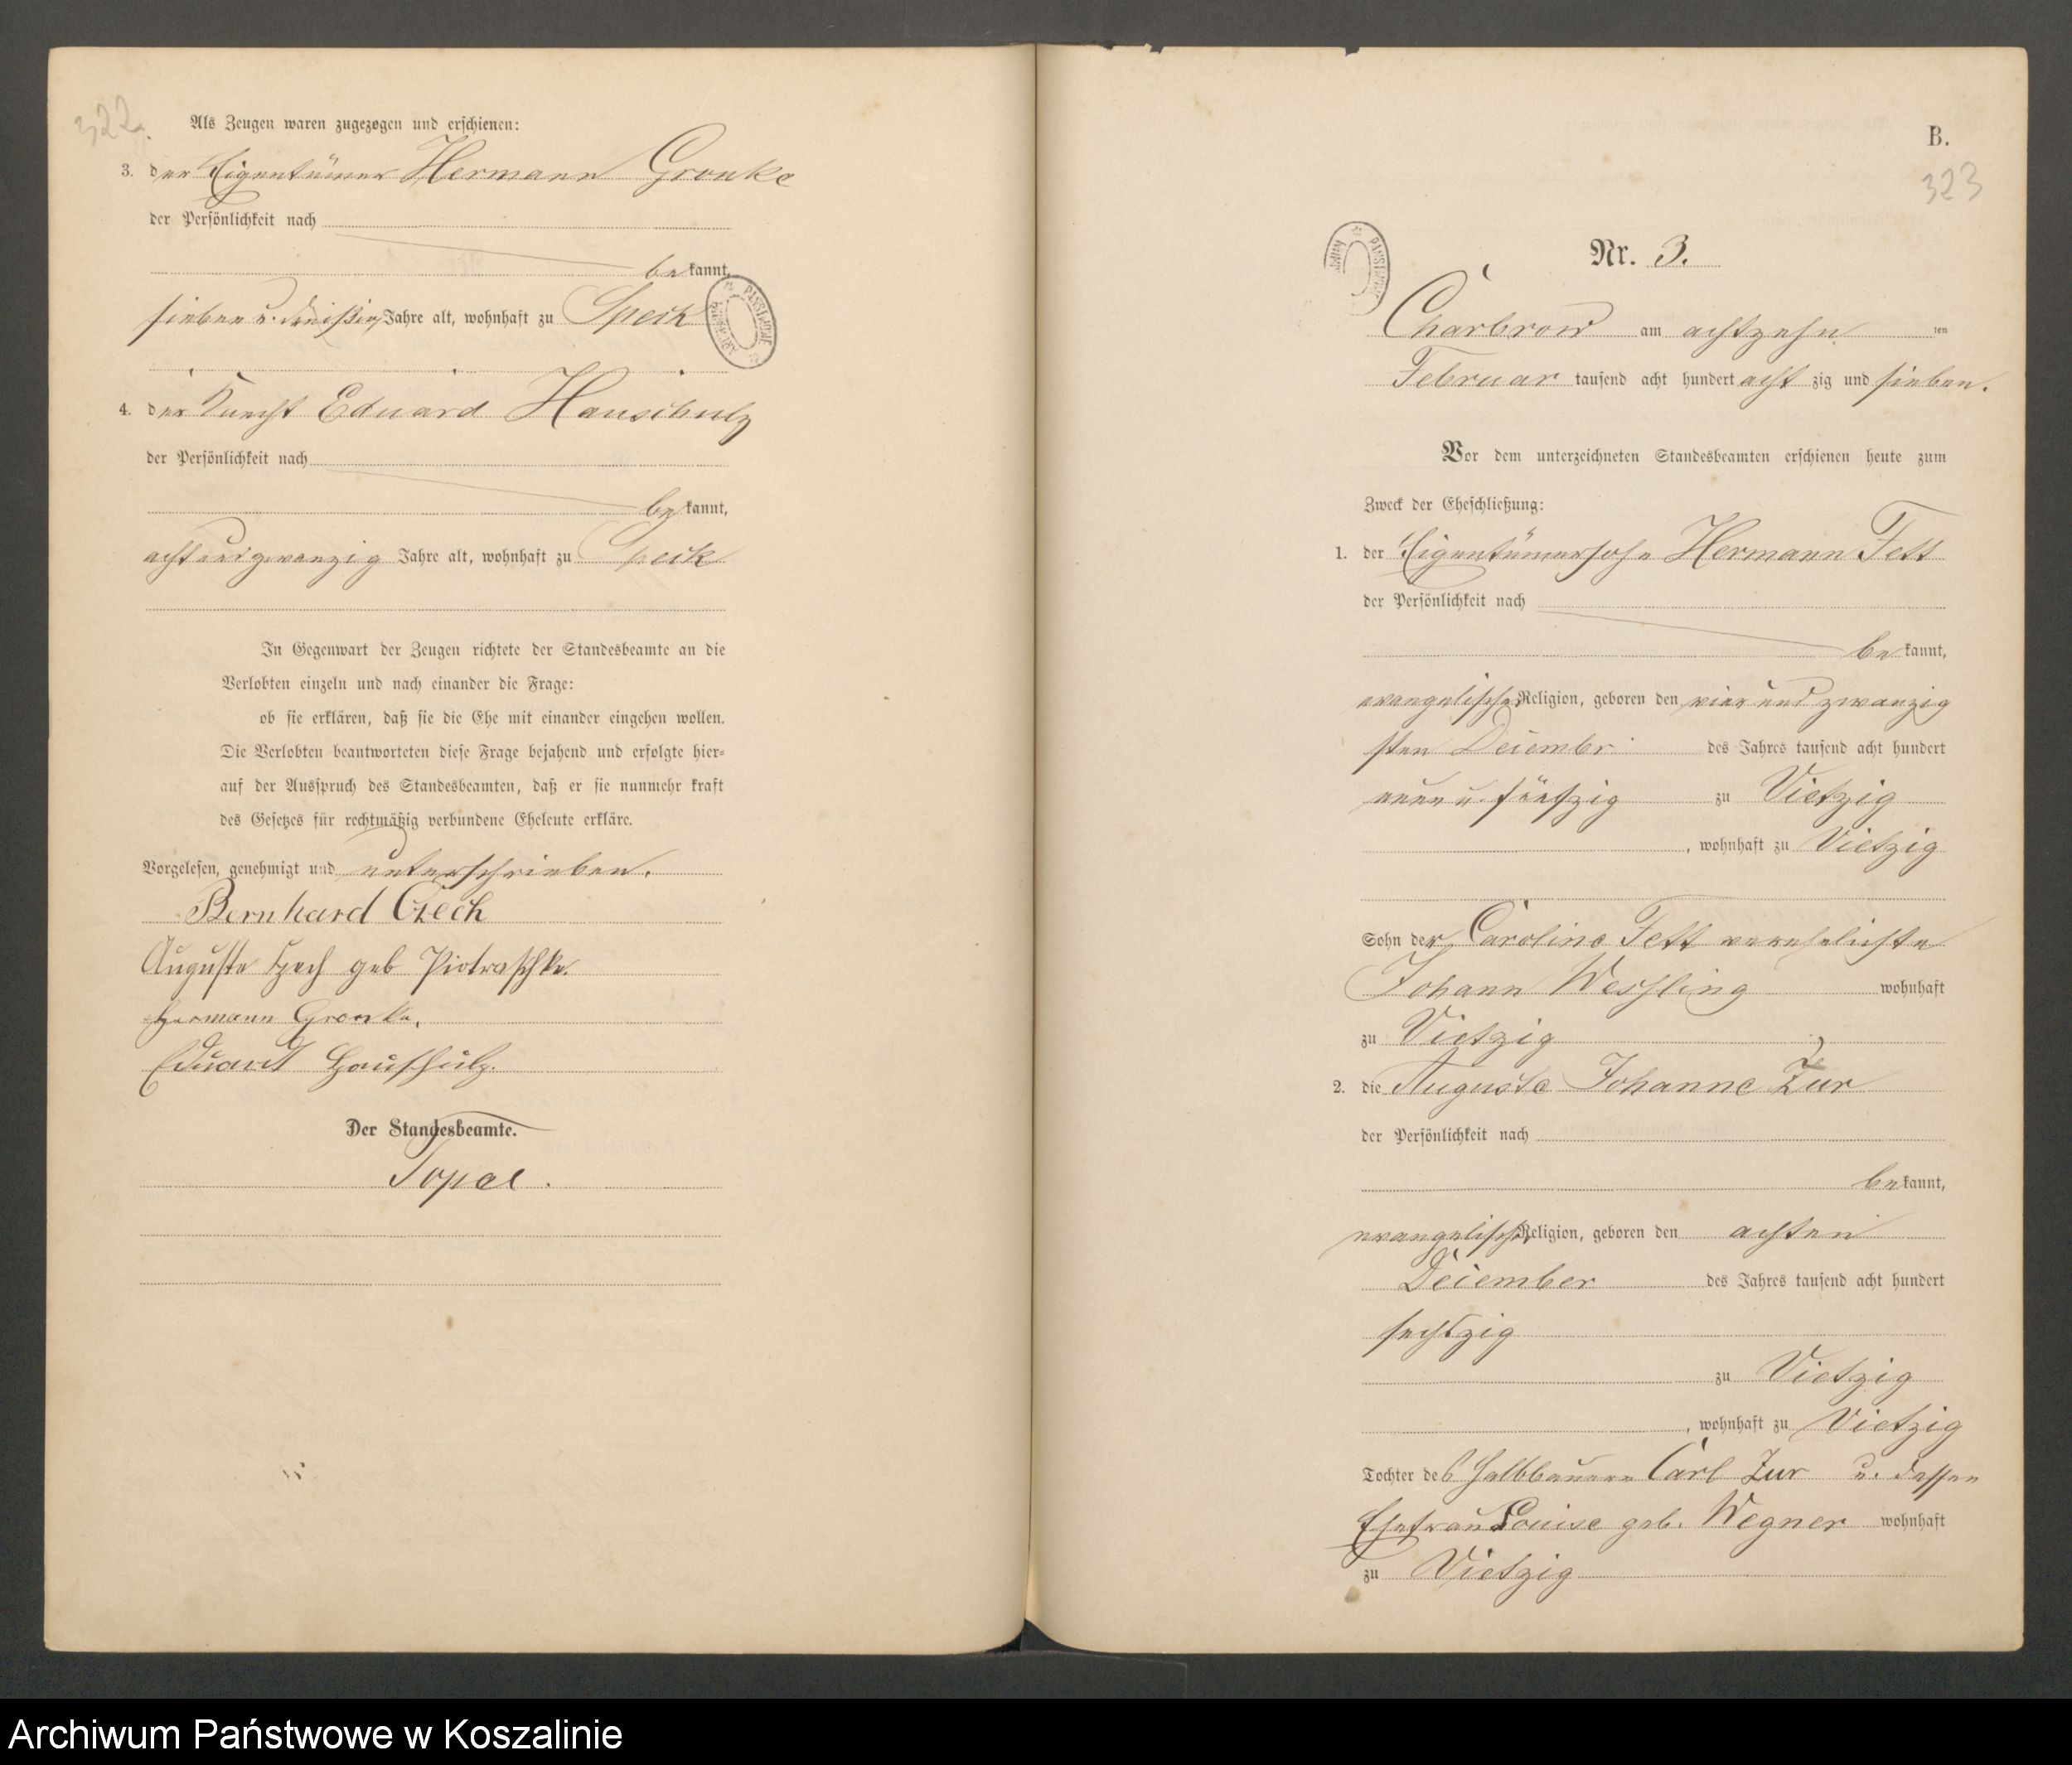 322
Als Zeugen waren zugezogen und erschienen:
3. der Eigentümer Hermann Gronke
der Persönlichkeit nach
bekannt,
sieben u. dreißig Jahre alt, wohnhaft zu Speck
4. der Knecht Eduard Hauschulz
der Persönlichkeit nach
bekannt,
achtundzwanzig Jahre alt, wohnhaft zu Speck
In Gegenwart der Zeugen richtete der Standesbeamte an die
Verlobten einzeln und nach einander die Frage:
ob sie erklären, daß sie die Ehe mit einander eingehen wollen.
Die Verlobten beantworteten diese Frage bejahend und erfolgte hier-
auf der Ausspruch des Standesbeamten, daß er sie nunmehr kraft
des Gesetzes für rechtmäßig verbundene Eheleute erkläre.
Vorgelesen, genehmigt und unterschrieben.
Bernhard Czech
Auguste Czech geb Piotraschke.
Hermann Gronke.
Eduard Hauschulz.
Der Standesbeamte.
Topel.
B.
323
Nr. 3.
Charbrow am achtzehn ten
Februar tausend acht hundert acht zig und sieben.
Vor dem unterzeichneten Standesbeamten erschienen heute zum
Zweck der Eheschließung:
1. der Eigentümersohn Hermann Fett
der Persönlichkeit nach
bekannt,
evangelischer Religion, geboren den vier und zwanzig
sten Dezembr. des Jahres tausend acht hundert
neun u. fünfzig zu Vietzig
, wohnhaft zu Vietzig
Sohn der Caroline Fett verehelichte
Johann Wessling wohnhaft
zu Vietzig
2. die Auguste Johanne Zur
der Persönlichkeit nach
bekannt,
evangelischer Religion, geboren den achten
Dezember des Jahres tausend acht hundert
sechszig
zu Vietzig
, wohnhaft zu Vietzig
Tochter des Halbbauern Carl Zur u. dessen
Ehefrau Louise geb. Wegner wohnhaft
zu Vietzig
Archiwum Państwowe w Koszalinie